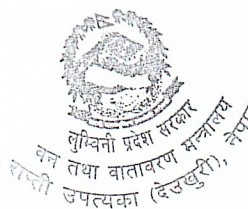 लुम्विनी प्रदेश सरकार
वन तथा वातावरण मन्त्रालय
राप्ती उपत्यका (देउखुरी), नेपाल